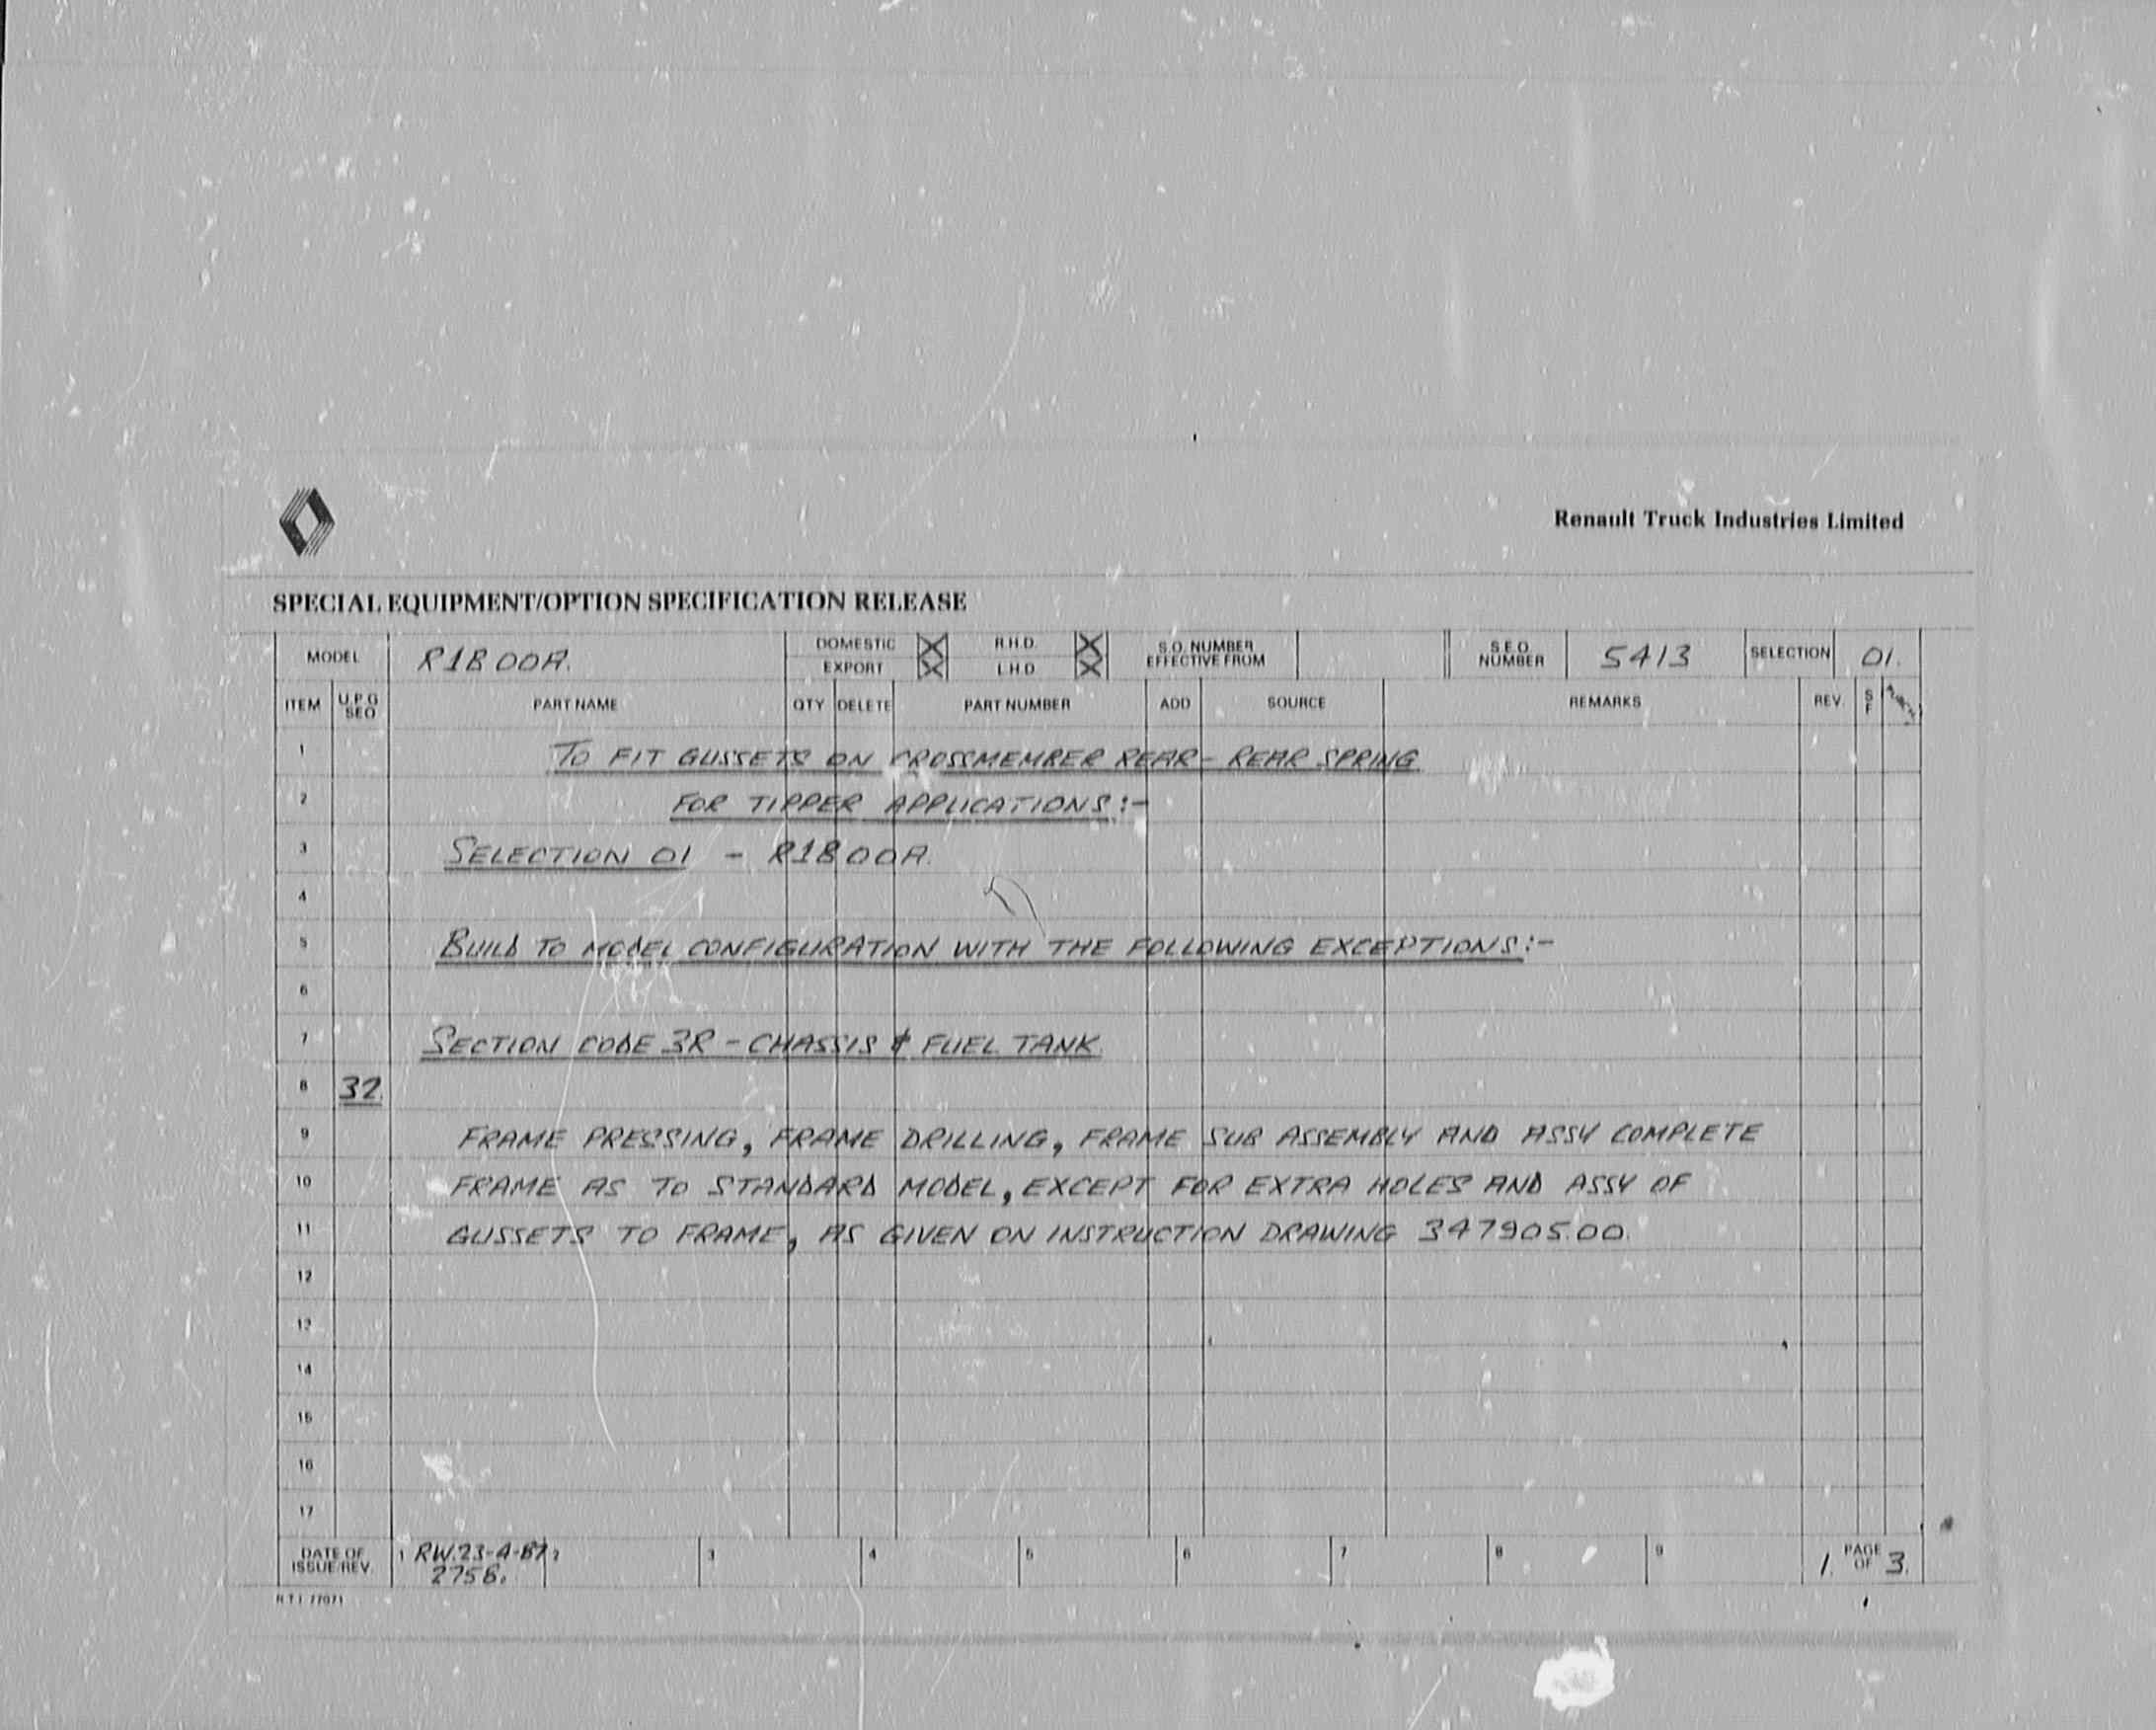 Renault Truck Industries Limited
SPECIAL EQUIPMENT/OPTION SPECIFICATION RELEASE
MODEL R1800A. DOMESTIC X R.H.D. X S.O. NUMBER EFFECTIVE FROM S.E.O. NUMBER 5413 SELECTION 01.
EXPORT X L.H.D. X
ITEM U.P.G SEQ PART NAME QTY DELETE PART NUMBER ADD SOURCE REMARKS REV. S F
1 TO FIT GUSSETS ON CROSSMEMBER REAR - REAR SPRING
2 FOR TIPPER APPLICATIONS:-
3 SELECTION 01 - R1800A.
4
5 BUILD TO MODEL CONFIGURATION WITH THE FOLLOWING EXCEPTIONS:-
6
7 SECTION CODE 3R - CHASSIS & FUEL TANK
8 32.
9 FRAME PRESSING, FRAME DRILLING, FRAME SUB ASSEMBLY AND ASSY COMPLETE
10 FRAME AS TO STANDARD MODEL, EXCEPT FOR EXTRA HOLES AND ASSY OF
11 GUSSETS TO FRAME, AS GIVEN ON INSTRUCTION DRAWING 347905.00.
12
13
14
15
16
17
DATE OF ISSUE/REV. 1 RW.23-4-87 2 3 4 5 6 7 8 9 1. PAGE OF 3.
2758.
R.T.I. 77071